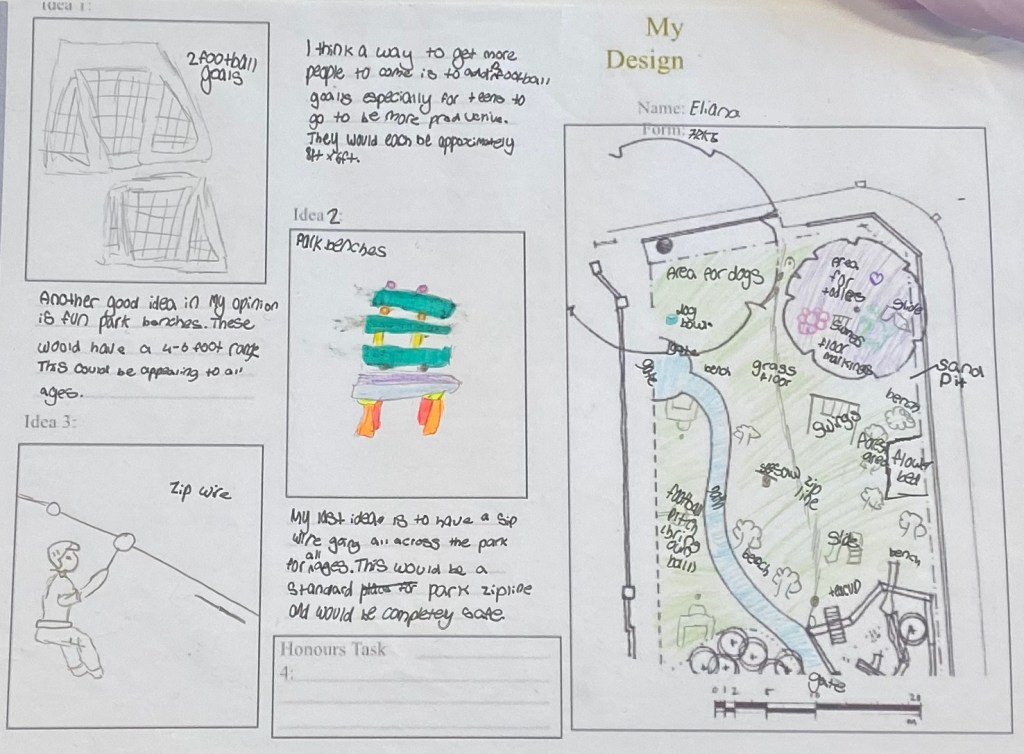 Idea 1:
2 football
goals
I think a way to get more
people to come is to football
goals especially for teens to
go to be more
They would each be approximately
8ft x 6ft.
Another good idea in my opinion
is fun park benches. These
would have a 4-6 foot range
This could be appealing to all
ages.
Idea 2:
Park benches
Idea 3:
Zip wire
My last idea is to have a sip
wire going all across the park
for all ages. This would be a
Standard park zipline
and would be completely safe.
Honours Task
4:
My
Design
Name: Eliana
Form:
Area for dogs
dog
bowl
gate
gate
bench
grass
floor
Area
for
slide
swings
floor
markings
sand
pit
bench
swings
area
flower
bed
zip
line
football
pitch
(bring
own
ball)
path
bench
slide
bench
gate
0 1 2 5 10 20
m